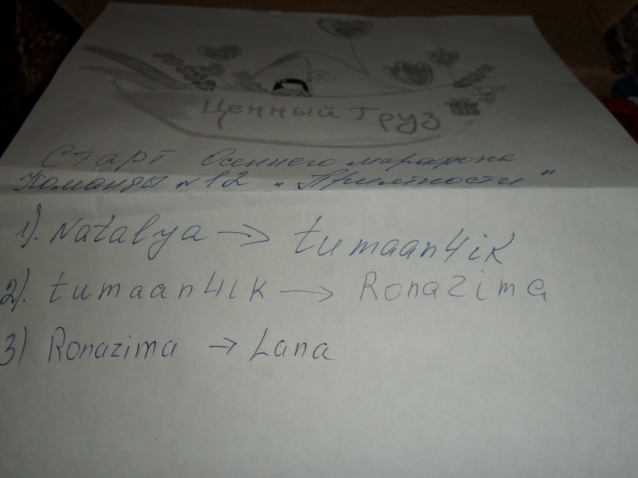 Ценный Груз
Старт Осеннего марафона
Команды №12 "Приятности"
1). Natalya → tumaan4ik
2). tumaan4ik → Ronazima
3) Ronazima → Lana